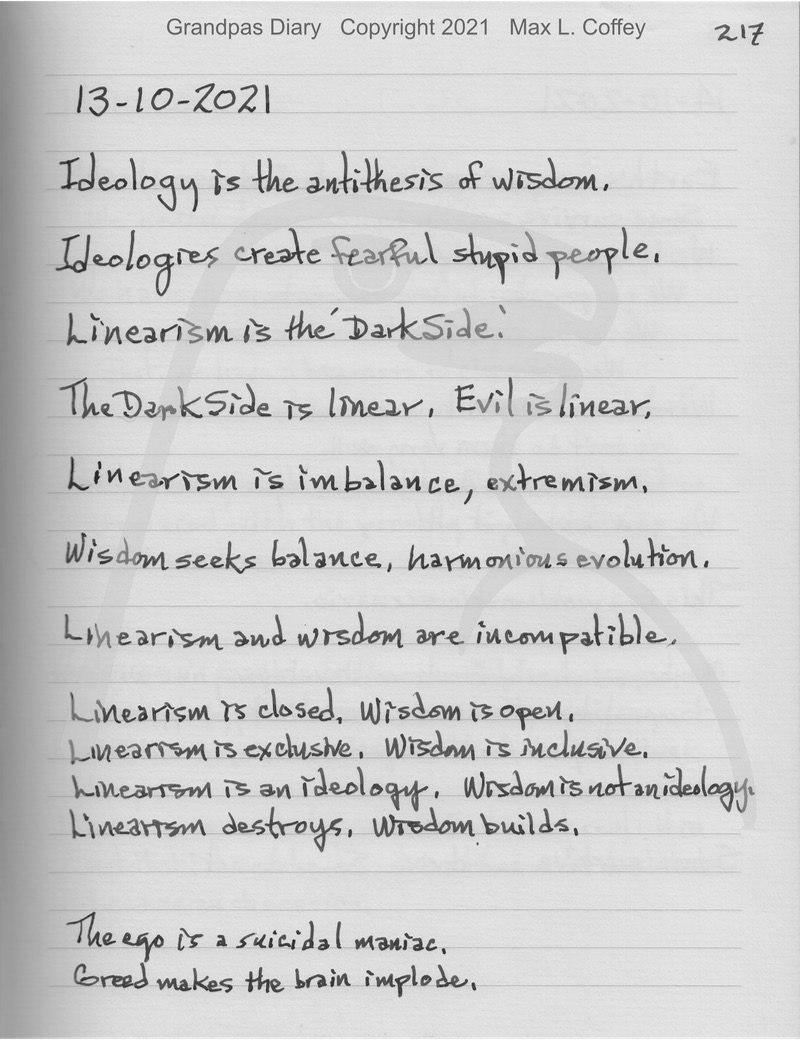 Grandpas Diary Copyright 2021 Max L. Coffey
217
13-10-2021
Ideology is the antithesis of wisdom.
Ideologies create fearful stupid people.
Linearism is the 'Dark Side.'
The Dark Side is linear. Evil is linear.
Linearism is imbalance, extremism.
Wisdom seeks balance, harmonious evolution.
Linearism and wisdom are incompatible.
Linearism is closed. Wisdom is open.
Linearism is exclusive. Wisdom is inclusive.
Linearism is an ideology. Wisdom is not an ideology.
Linearism destroys. Wisdom builds.
The ego is a suicidal maniac.
Greed makes the brain implode.